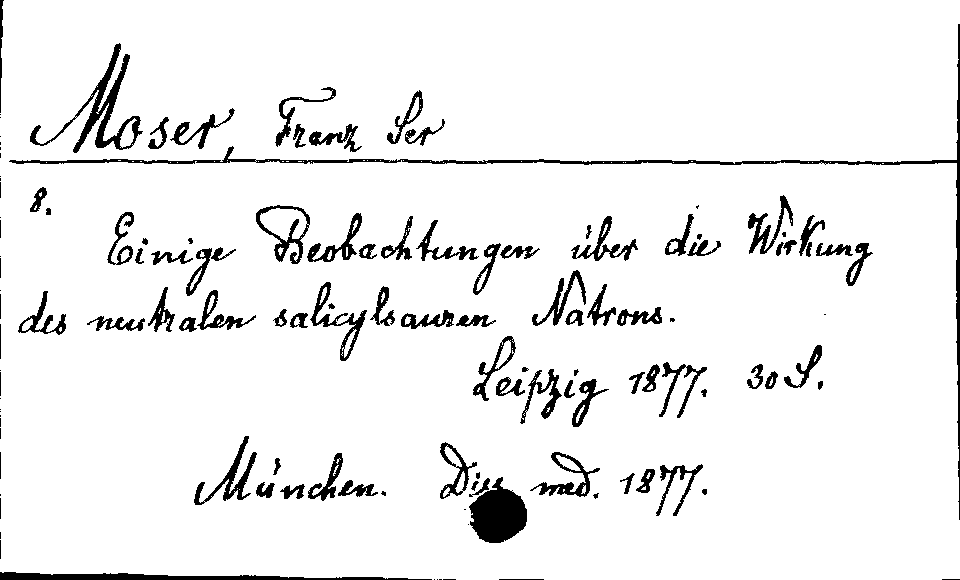 Moser, Franz Ser
8.
Einige Beobachtungen über die Wirkung
des neutralen salicylsauren Natrons.
Leipzig 1877. 30 S.
München. Diss med. 1877.